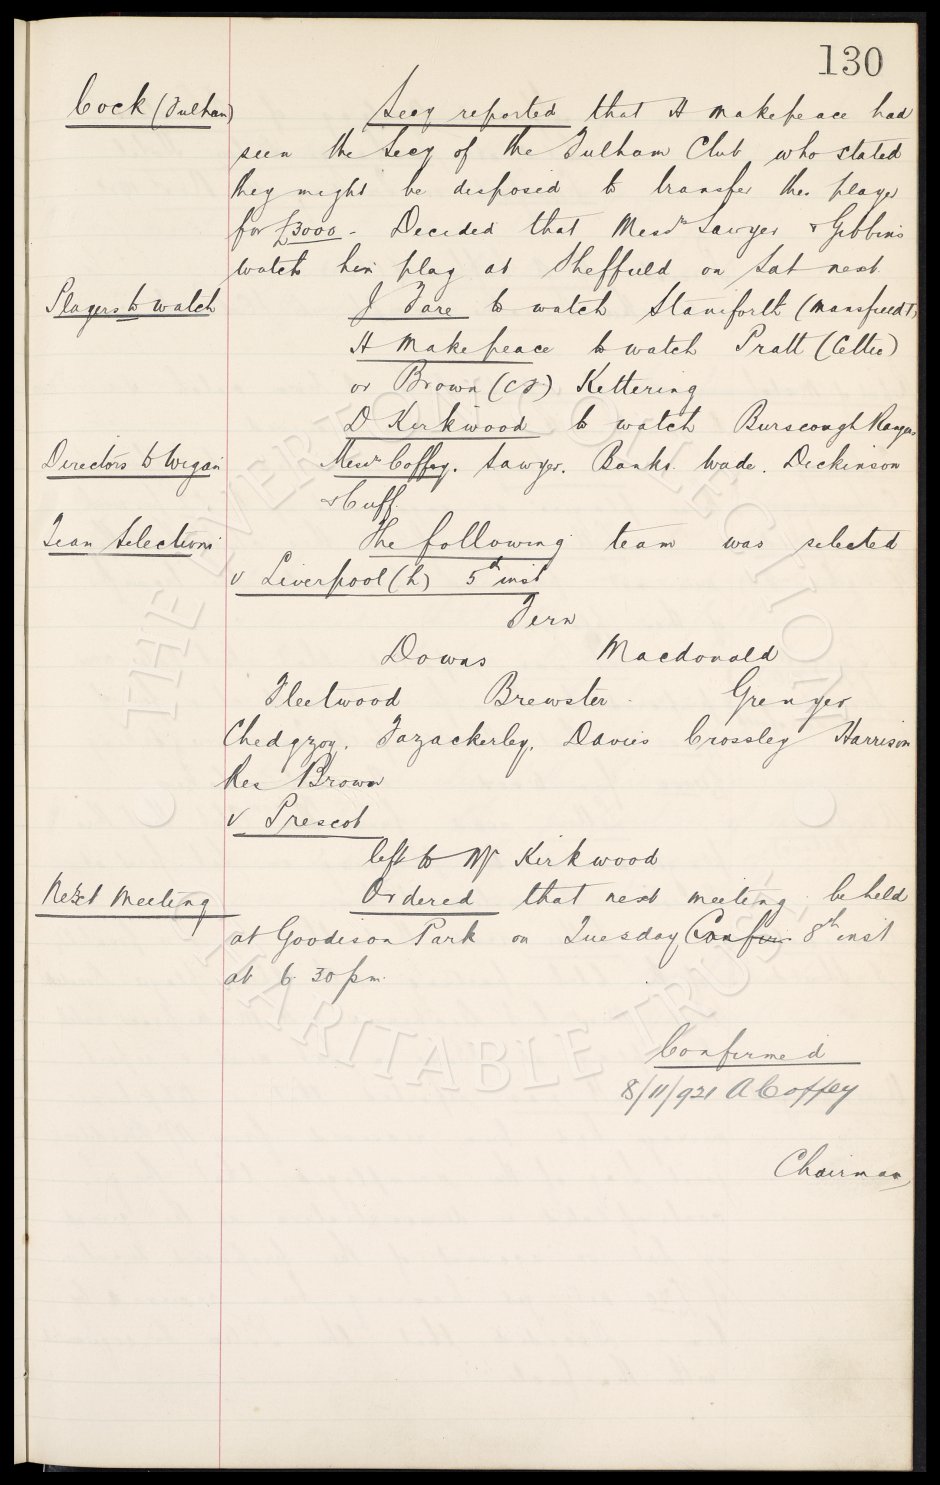 130
Cock (Fulham) Secy reported that H Makepeace had
seen the Secy of the Fulham Club who stated
they might be disposed to transfer the player
for £3000 - Decided that Messrs Sawyer & Gibbins
watch him play at Sheffield on Sat next.
Players to watch J Fare to watch Staniforth (Mansfield T)
H Makepeace to watch Pratt (Celtic)
or Brown (CF) Kettering
D Kirkwood to watch Burscough Rangers
Directors to Wigan Messrs Coffey. Sawyer. Banks. Wade. Dickinson
& Cuff.
Team Selections The following team was selected
v Liverpool (h) 5th inst
Fern
Downs Macdonald
Fleetwood Brewster Grenyer
Chedgzoy. Fazackerley. Davies Crossley Harrison
Res Brown
v Prescot
left to Mr Kirkwood
Next Meeting Ordered that next meeting be held
at Goodison Park on Tuesday Confir 8th inst
at 6.30 pm.
Confirmed
8/11/921 A Coffey
Chairman
THE EVERTON COLLECTION
CHARITABLE TRUST